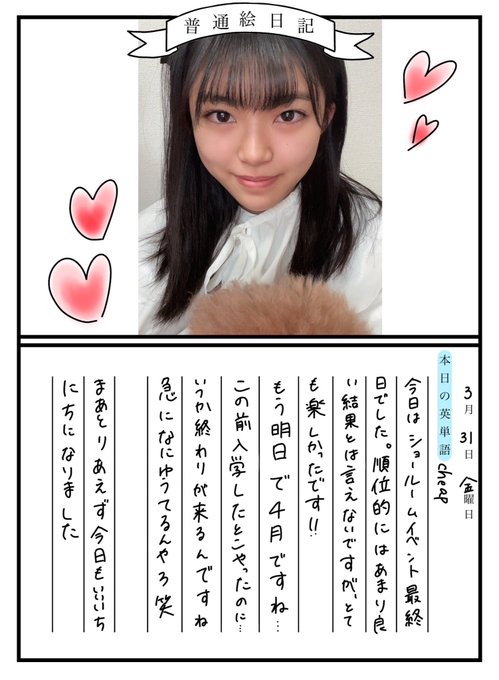 普通絵日記
3月31日金曜日
本日の英単語 cheap
今日はショールームイベント最終
日でした。順位的にはあまり良
い結果とは言えないですが、とて
も楽しかったです!!
もう明日で4月ですね…
この前入学したとこやったのに…
いつか終わりが来るんですね
急になにゆうてるんやろ笑
まあとりあえず今日もいいいち
にちになりました